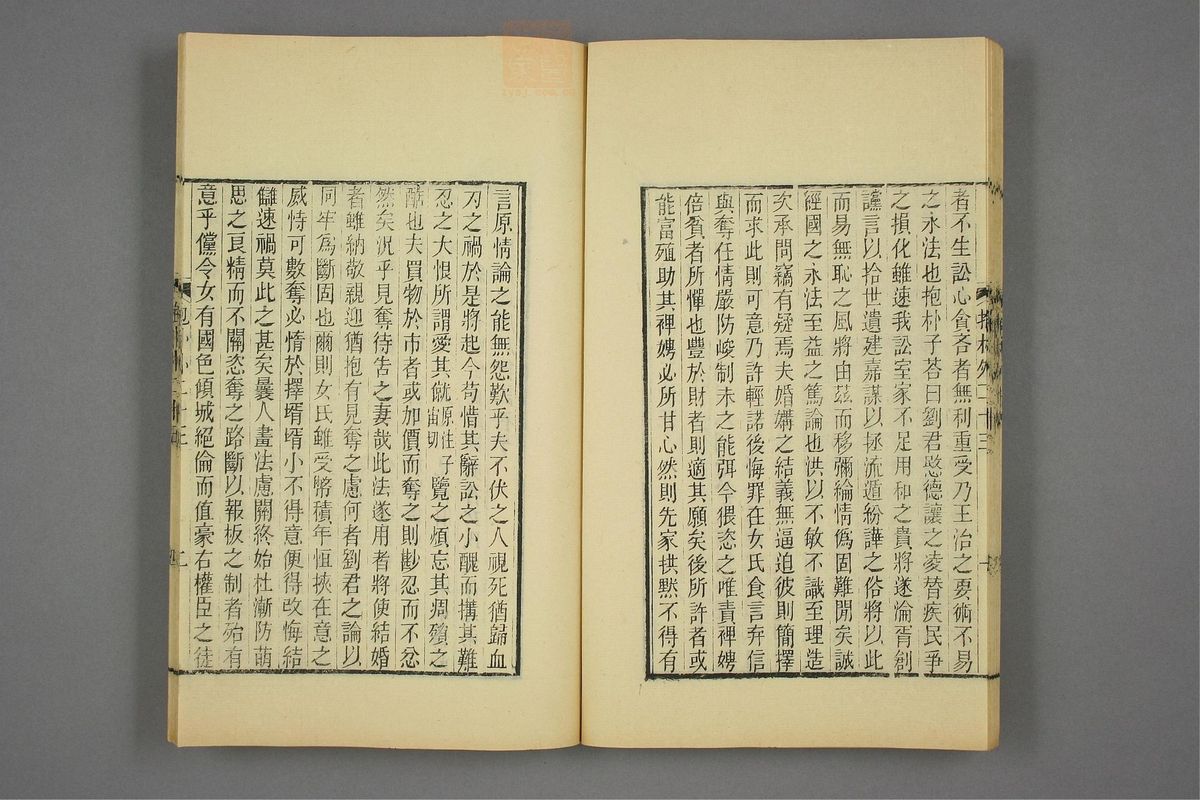 者不生訟心貪吝者無利重受乃王治之要術不易
之永法也抱朴子荅曰劉君愍德讓之凌替疾民爭
之損化雖速我訟室家不足用和之貴將遂淪胥創
讜言以拾世遺建嘉謀以拯流遁紛譁之俗將以此
而易無恥之風將由茲而移彌綸情偽固難閒矣誠
經國之永法至益之篤論也洪以不敏不識至理造
次承問竊有疑焉夫婚媾之結義無逼迫彼則簡擇
而求此則可意乃許輕諾後悔罪在女氏食言弃信
與奪任情嚴防峻制未之能弭今猥恣之唯責裨娉
倍貧者所憚也豐於財者則適其願矣後所許者或
能富殖助其裨娉必所甘心然則先家拱默不得有
言原情論之能無怨歎乎夫不伏之人視死猶歸血
刃之禍於是將起今苟惜其辭訟之小醜而搆其難
忍之大恨所謂愛其飢原注宙切子覽之煩忘其凋殞之
酷也夫買物於市者或加價而奪之則尠忍而不忿
然矣況乎見奪待告之妻哉此法遂用者將使結婚
者雖納敬親迎猶抱有見奪之慮何者劉君之論以
同牢為斷固也爾則女氏雖受幣積年恒挾在意之
威恃可數奪必惰於擇壻壻小不得意便得改悔結
讎速禍莫此之甚矣曩人畫法慮關終始杜漸防萌
思之良精而不關恣奪之路斷以報板之制者殆有
意乎儻令女有國色傾城絕倫而值豪右權臣之徒